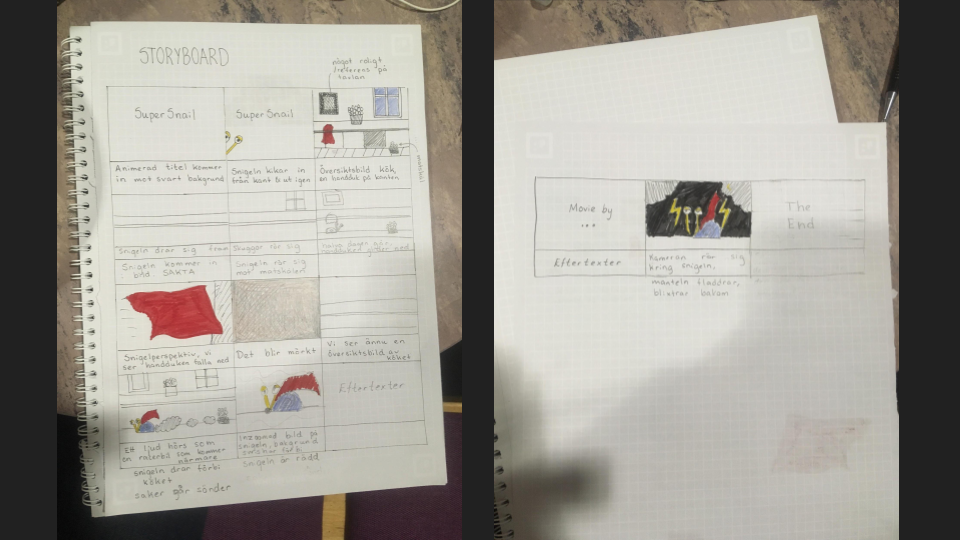 STORYBOARD
något roligt
/referens på
tavlan
SuperSnail
SuperSnail
Animerad titel kommer
in mot svart bakgrund
Snigeln kikar in
från kant & ut igen
Översiktsbild kök,
en handduk på kanten
Snigeln drar sig fram
Skuggor rör sig
Snigeln kommer in
i bild SAKTA
Snigeln rör sig
mot matskålen
Snigelperspektiv, vi
ser handduken falla ned
Det blir mörkt
Vi ser ännu en
översiktsbild av
köket
Eftertexter
Ett ljud hörs som
en racerbil som kommer
närmare
Inzoomad bild på
snigeln, bakgrund
snigeln är rädd
snigeln drar förbi
köket
saker går sönder
Movie by
...
The
End
Eftertexter
Kameran rör sig
kring snigeln,
manteln fladdrar,
blixtrar bakom